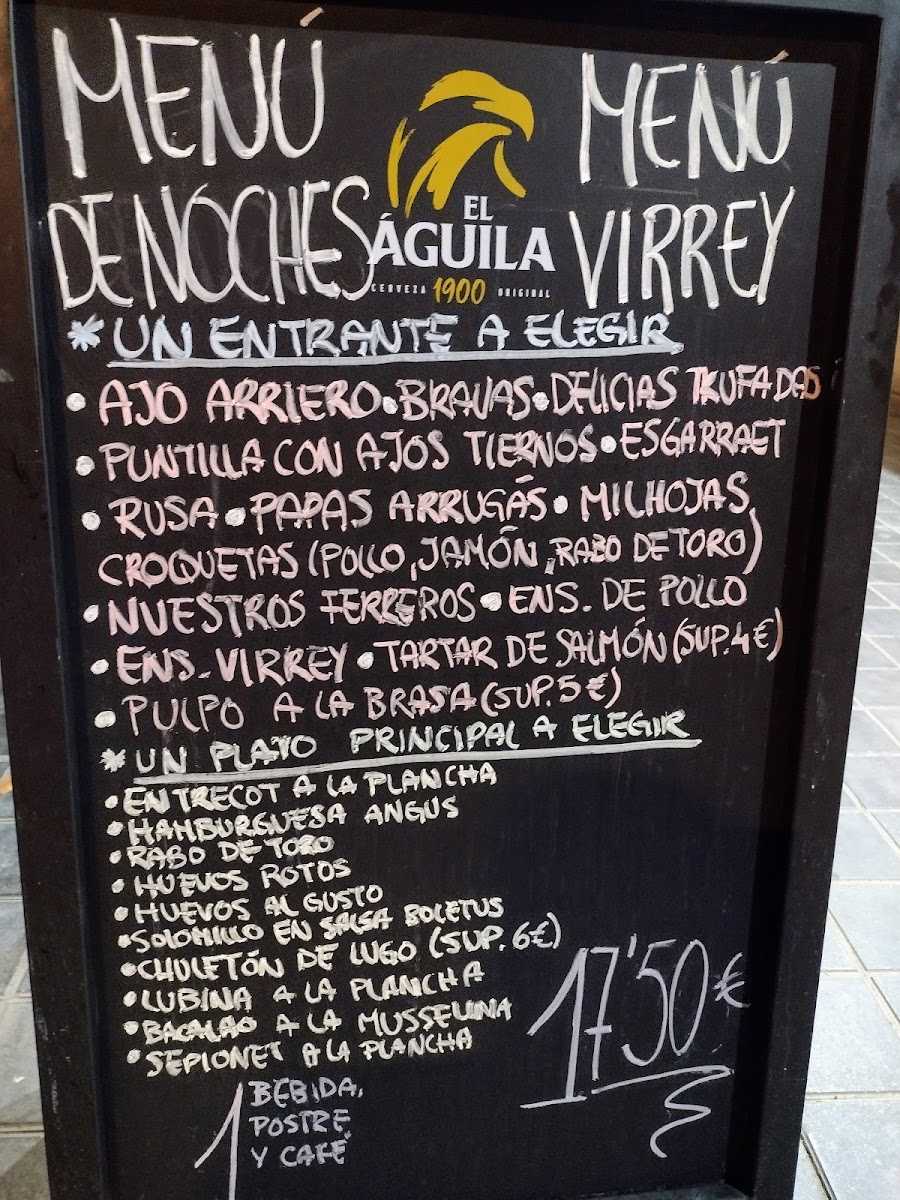 MENÚ
DE NOCHES
EL
ÁGUILA
CERVEZA 1900 ORIGINAL
MENÚ
VIRREY
* UN ENTRANTE A ELEGIR
• AJO ARRIERO • BRAVAS • DELICIAS TRUFADAS
• PUNTILLA CON AJOS TIERNOS • ESGARRAET
• RUSA • PAPAS ARRUGÁS • MILHOJAS
CROQUETAS (POLLO, JAMÓN, RABO DE TORO)
• NUESTROS FERREROS • ENS. DE POLLO
• ENS. VIRREY • TARTAR DE SALMÓN (SUP. 4 €)
• PULPO A LA BRASA (SUP. 5 €)
* UN PLATO PRINCIPAL A ELEGIR
• ENTRECOT A LA PLANCHA
• HAMBURGUESA ANGUS
• RABO DE TORO
• HUEVOS ROTOS
• HUEVOS AL GUSTO
• SOLOMILLO EN SALSA BOLETUS
• CHULETÓN DE LUGO (SUP. 6€)
• LUBINA A LA PLANCHA
• BACALAO A LA MUSSELINA
• SEPIONET A LA PLANCHA
17'50€
1 BEBIDA,
POSTRE
Y CAFÉ